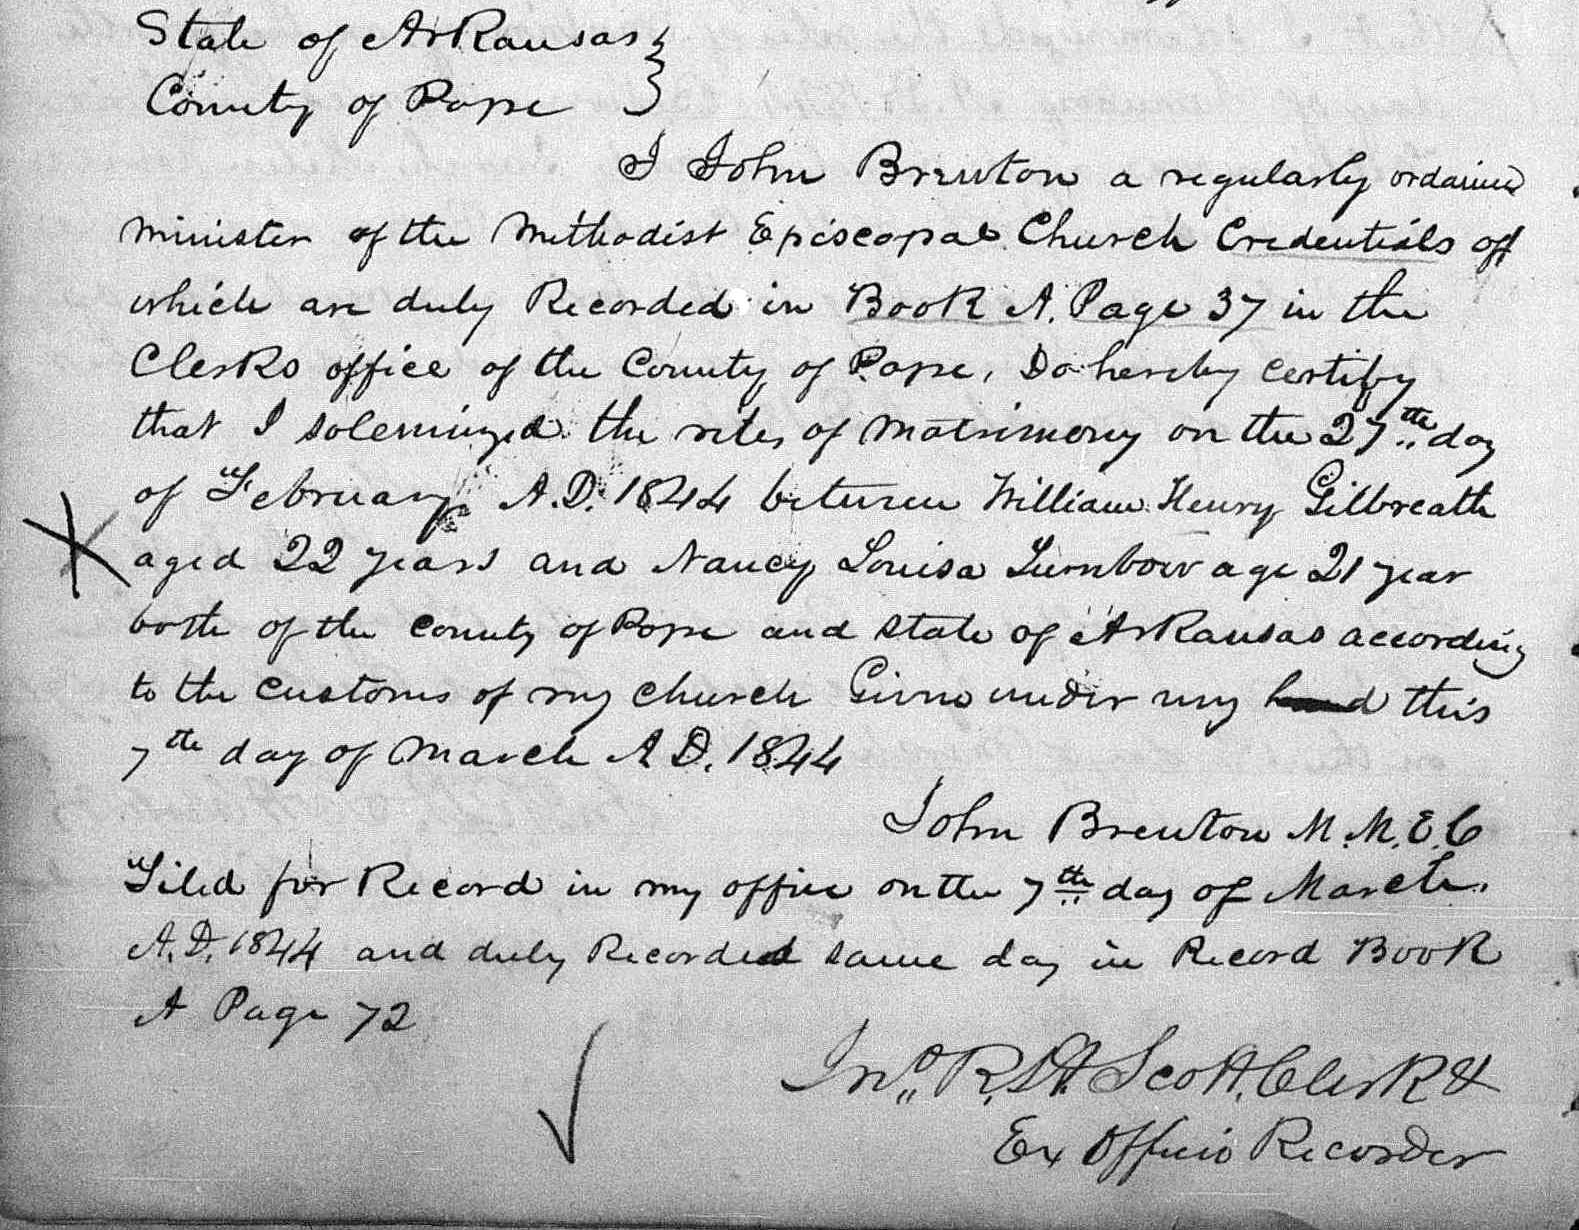 State of Arkansas }
County of Pope }
I John Brewton a regularly ordained
minister of the Methodist Episcopal Church Credentials of
which are duly Recorded in Book A. Page 37 in the
Clerks office of the County of Pope, Do hereby certify
that I solemnized the rites of Matrimony on the 27th day
of February A.D. 1844 between William Henry Gilbreath
aged 22 years and Nancy Louisa Turnbow age 21 year
both of the county of Pope and state of Arkansas according
to the customs of my church Given under my hand this
7th day of March A D. 1844
John Brewton M. M. E. C
Filed for Record in my office on the 7th day of March
A.D. 1844 and duly Recorded same day in Record Book
A Page 72
Jno. R. Scott, Clerk &
Ex Officio Recorder